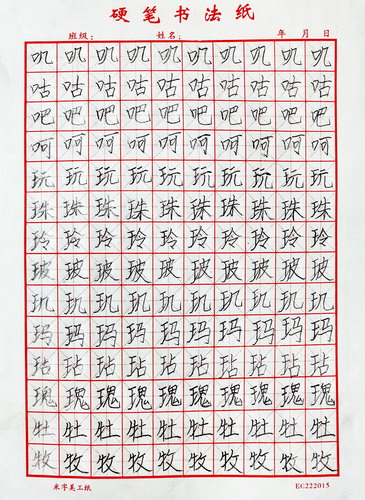 硬笔书法纸
班级： 姓名： 年 月 日
叽 叽 叽 叽 叽 叽 叽 叽 叽 叽
咕 咕 咕 咕 咕 咕 咕 咕 咕 咕
吧 吧 吧 吧 吧 吧 吧 吧 吧 吧
呵 呵 呵 呵 呵 呵 呵 呵 呵 呵
玩 玩 玩 玩 玩 玩 玩 玩 玩 玩
珠 珠 珠 珠 珠 珠 珠 珠 珠 珠
玲 玲 玲 玲 玲 玲 玲 玲 玲 玲
玻 玻 玻 玻 玻 玻 玻 玻 玻 玻
玑 玑 玑 玑 玑 玑 玑 玑 玑 玑
玛 玛 玛 玛 玛 玛 玛 玛 玛 玛
玷 玷 玷 玷 玷 玷 玷 玷 玷 玷
瑰 瑰 瑰 瑰 瑰 瑰 瑰 瑰 瑰 瑰
牡 牡 牡 牡 牡 牡 牡 牡 牡 牡
牧 牧 牧 牧 牧 牧 牧 牧 牧 牧
米字美工纸 EC222015